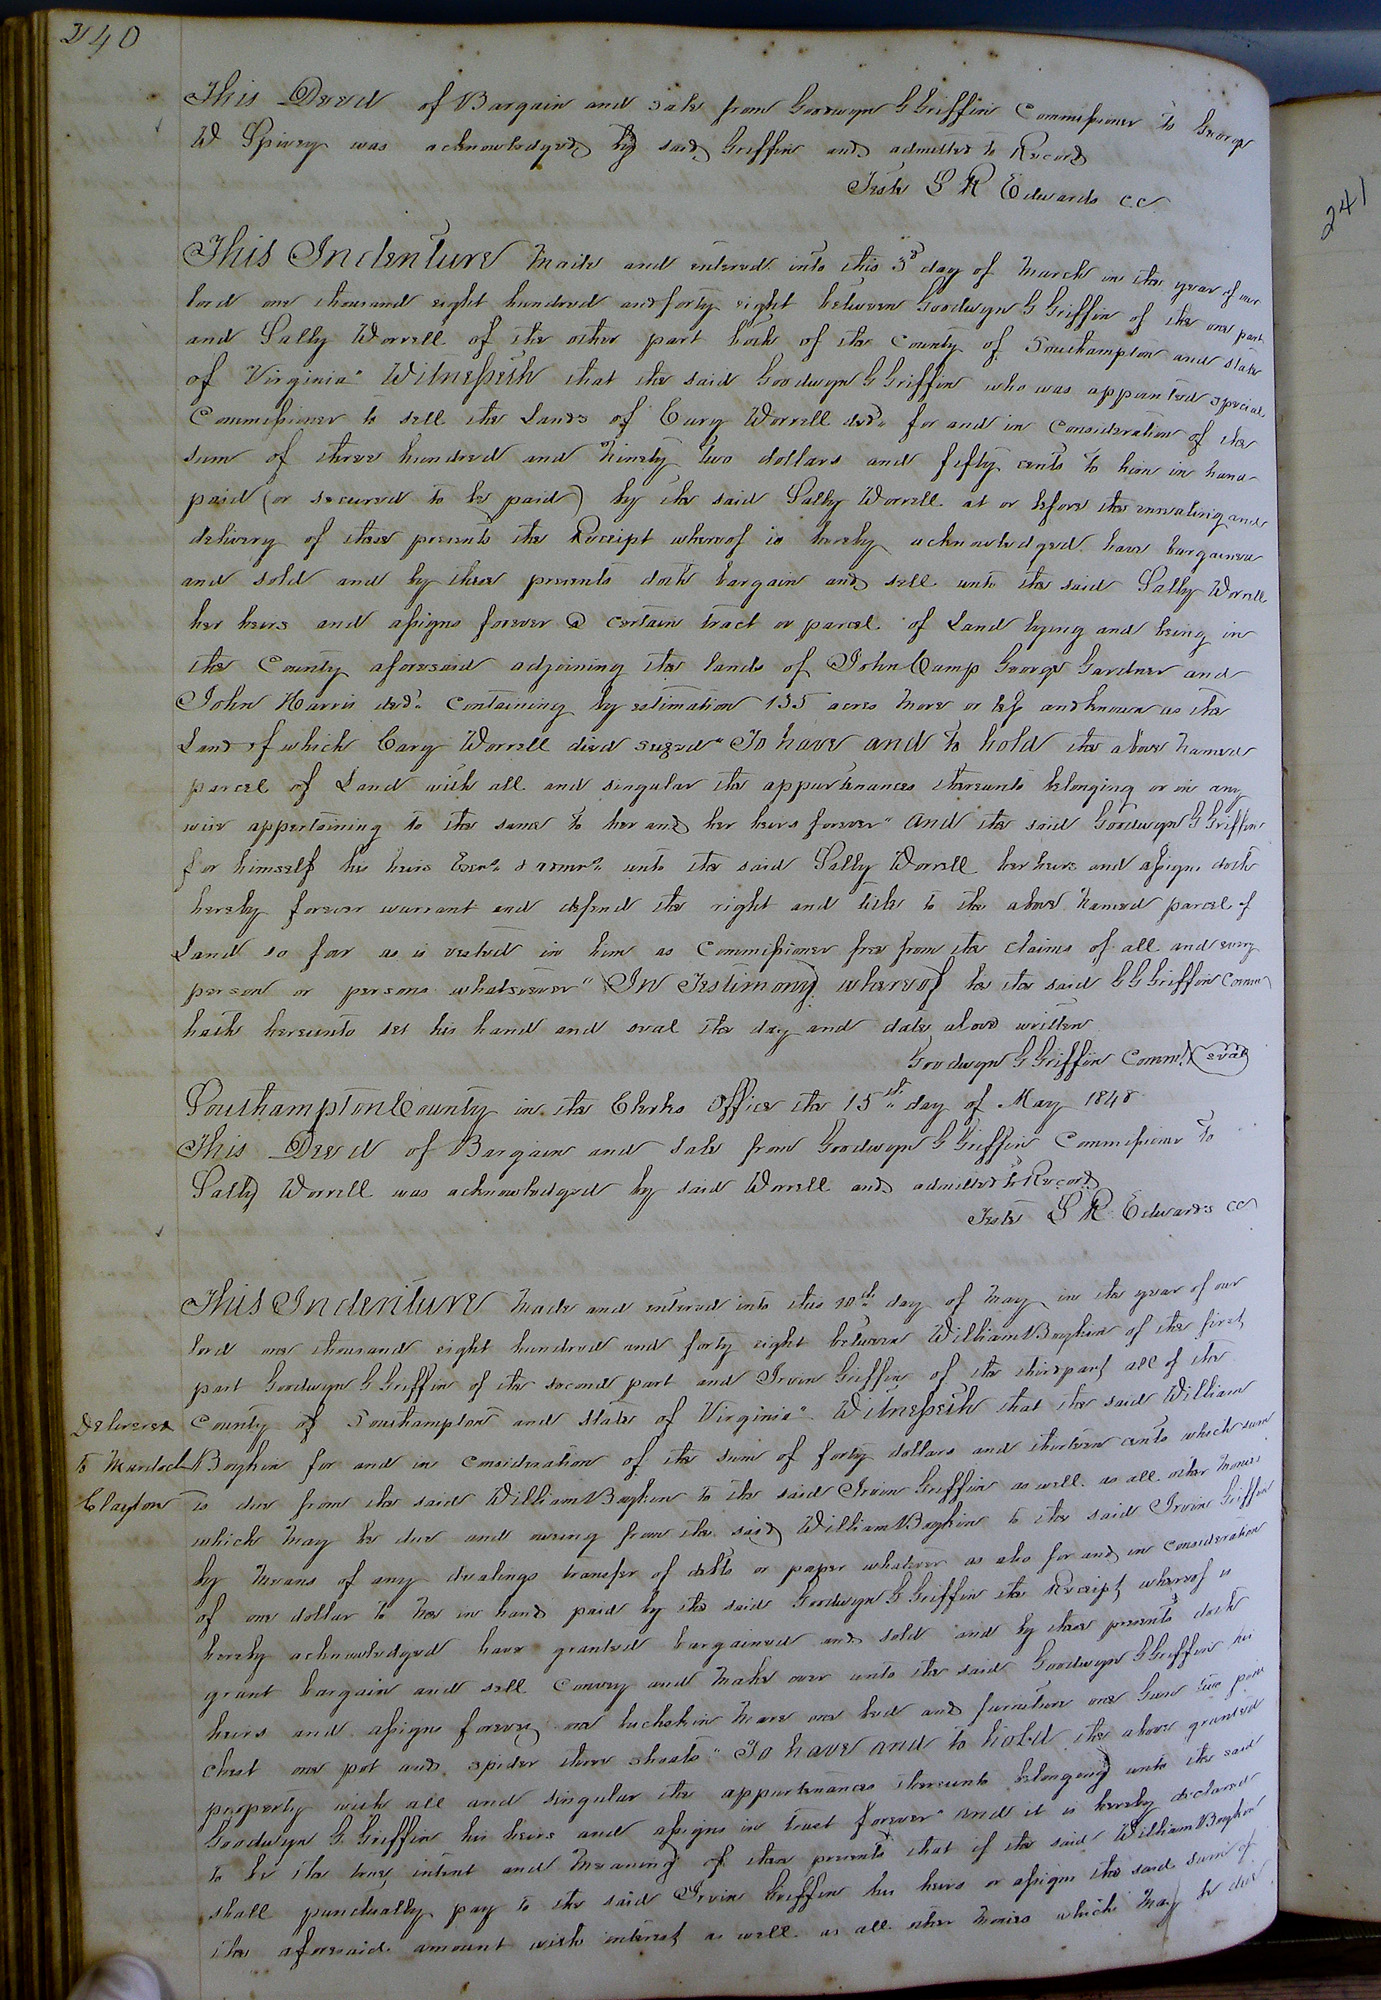 240
This Deed of Bargain and sale from Goodwyn G Griffin Commissioner to George
W Spivey was acknowledged by said Griffin and admitted to Record
Teste L R Edwards c.c.
This Indenture made and entered into this 3d day of March in the year of our
lord one thousand eight hundred and forty eight between Goodwyn G Griffin of the one part
and Sally Worrell of the other part both of the County of Southampton and State
of Virginia" Witnesseth that the said Goodwyn G Griffin who was appointed special
Commissioner to sell the Lands of Cary Worrell decd. for and in Consideration of the
sum of three hundred and Ninety two dollars and fifty cents to him in hand
paid (or secured to be paid) by the said Sally Worrell at or before the ensealing and
delivery of these presents the Receipt whereof is hereby acknowledged have bargained
and sold and by these presents doth bargain and sell unto the said Sally Worrell
her heirs and assigns forever a certain tract or parcel of Land lying and being in
the County aforesaid adjoining the lands of John Camp George Gardner and
John Harris decd. Containing by estimation 135 acres more or less and known as the
Land of which Cary Worrell died seized" To have and to hold the above Named
parcel of Land with all and singular the appurtenances thereunto belonging or in any
wise appertaining to the same to her and her heirs forever" And the said Goodwyn G Griffin
for himself his heirs Exors. & admrs. unto the said Sally Worrell her heirs and assigns doth
hereby forever warrant and defend the right and title to the above Named parcel of
Land so far as is vested in him as Commissioner free from the claims of all and every
person or persons whatsoever" In Testimony whereof he the said G G Griffin Comm
hath hereunto set his hand and seal the day and date above written
Goodwyn G Griffin Comm. seal
Southampton County in the Clerks Office the 15th day of May 1848
This Deed of Bargain and sale from Goodwyn G Griffin Commissioner to
Sally Worrell was acknowledged by said Worrell and admitted to Record
Teste L R Edwards cc
This Indenture Made and entered into this 10th day of May in the year of our
lord one thousand eight hundred and forty eight between William Boykin of the first
part Goodwyn G Griffin of the second part and Irvin Griffin of the third part all of the
County of Southampton and State of Virginia" Witnesseth that the said William
Boykin for and in Consideration of the sum of forty dollars and thirteen cents which sum
is due from the said William Boykin to the said Irvin Griffin as well as all other monies
which may be due and owing from the said William Boykin to the said Irvin Griffin
by Means of any dealings transfer of debts or paper whatever as also for and in Consideration
of one dollar to me in hand paid by the said Goodwyn G Griffin the Receipt whereof is
hereby acknowledged have granted bargained and sold and by these presents doth
grant bargain and sell Convey and Make over unto the said Goodwyn G Griffin his
heirs and assigns forever one buckskin Mare one bed and furniture one Gun two pine
Chest one pot and spider three shoats" To have and to hold the above granted
property with all and singular the appurtenances thereunto belonging unto the said
Goodwyn G Griffin his heirs and assigns in trust forever" And it is hereby declared
to be the true intent and Meaning of these presents that if the said William Boykin
shall punctually pay to the said Irvin Griffin his heirs or assigns the said sum of
the aforesaid amount with interest as well as all other Monies which May be due
Delivered
to Murdoch
Clayton
241